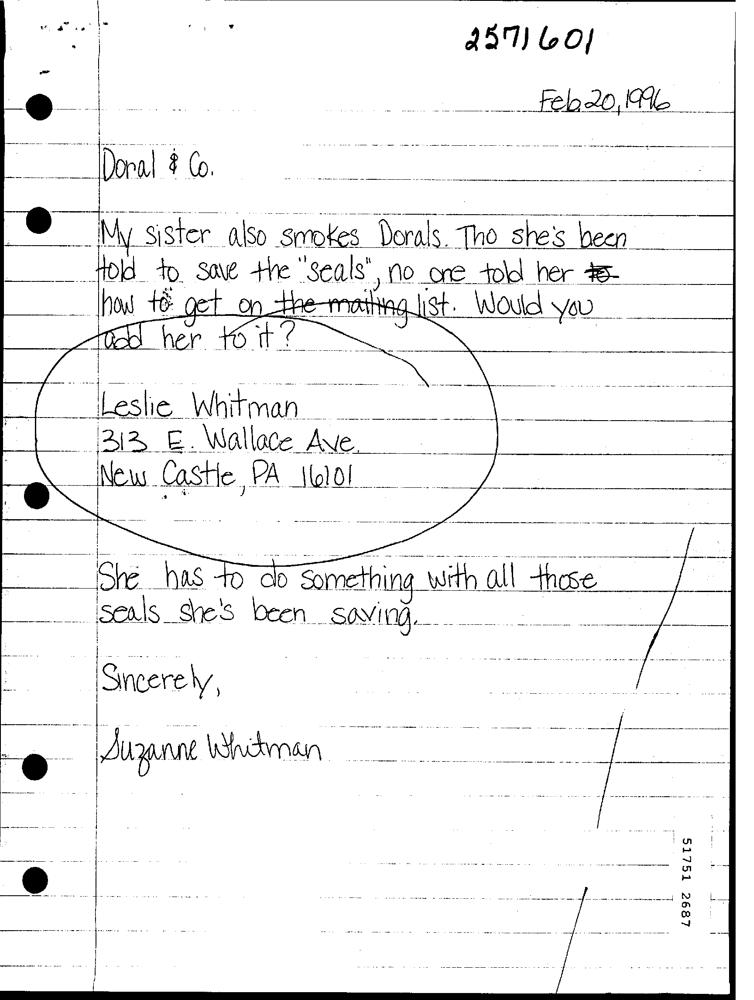 2571601
Feb. 20, 1996
Doral & Co.
My sister also smokes Dorals. Tho she's been
told to save the "seals", no one told her to
how to get on the mailing list. Would you
add her to it?
Leslie Whitman
313 E. Wallace Ave.
New Castle, PA 16101
She has to do something with all those
seals she's been saving.
Sincerely,
Suzanne Whitman
51751 2687